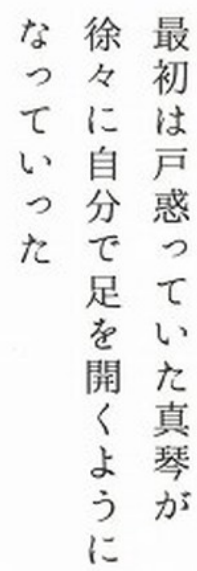 最初は戸惑っていた真琴が
徐々に自分で足を開くように
なっていった